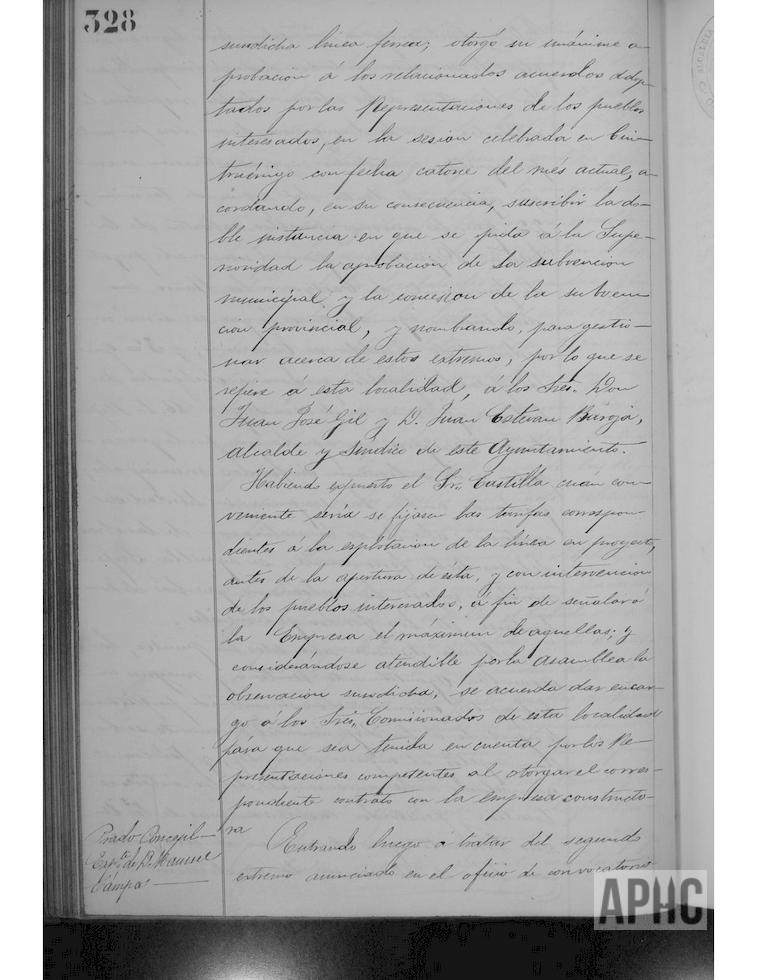 328
susodicha línea ferrea; otorgó su unánime a-
probacion á los relacionados acuerdos adop-
tados por las Representaciones de los pueblos
interesados, en la sesion celebrada en Cin-
truénigo con fecha catorce del més actual, a-
cordando, en su consecuencia, suscribir la do-
ble instancia en que se pida á la Supe-
rioridad la aprobacion de la subvencion
municipal y la concesion de la subven-
cion provincial, y nombrando, para gestio-
nar acerca de estos extremos, por lo que se
refiere á esta localidad, á los Sres. Don
Juan José Gil y D. Juan Estevan Baroja,
alcalde y Sindico de este Ayuntamiento.
Habiendo expuesto el Sr. Castilla cuán con-
veniente sería se fijasen las tarifas correspon-
dientes á la explotacion de la línea en proyecto,
antes de la apertura de ésta, y con intervencion
de los pueblos interesados, á fin de señalar á
la Empresa el máximun de aquellas; y
considerándose atendible por la Asamblea la
observacion susodicha, se acuerda dar encar-
go á los Srés. Comisionados de esta localidad
pára que sea tenida en cuenta por las Re-
presentaciones competentes al otorgar el corres-
pondiente contrato con la empresa constructo-
ra
Prado Concejil
Expte. de D. Manuel
Sámpar
Entrando luego á tratar del segundo
extremo anunciado en el oficio de convocatoria
APHC